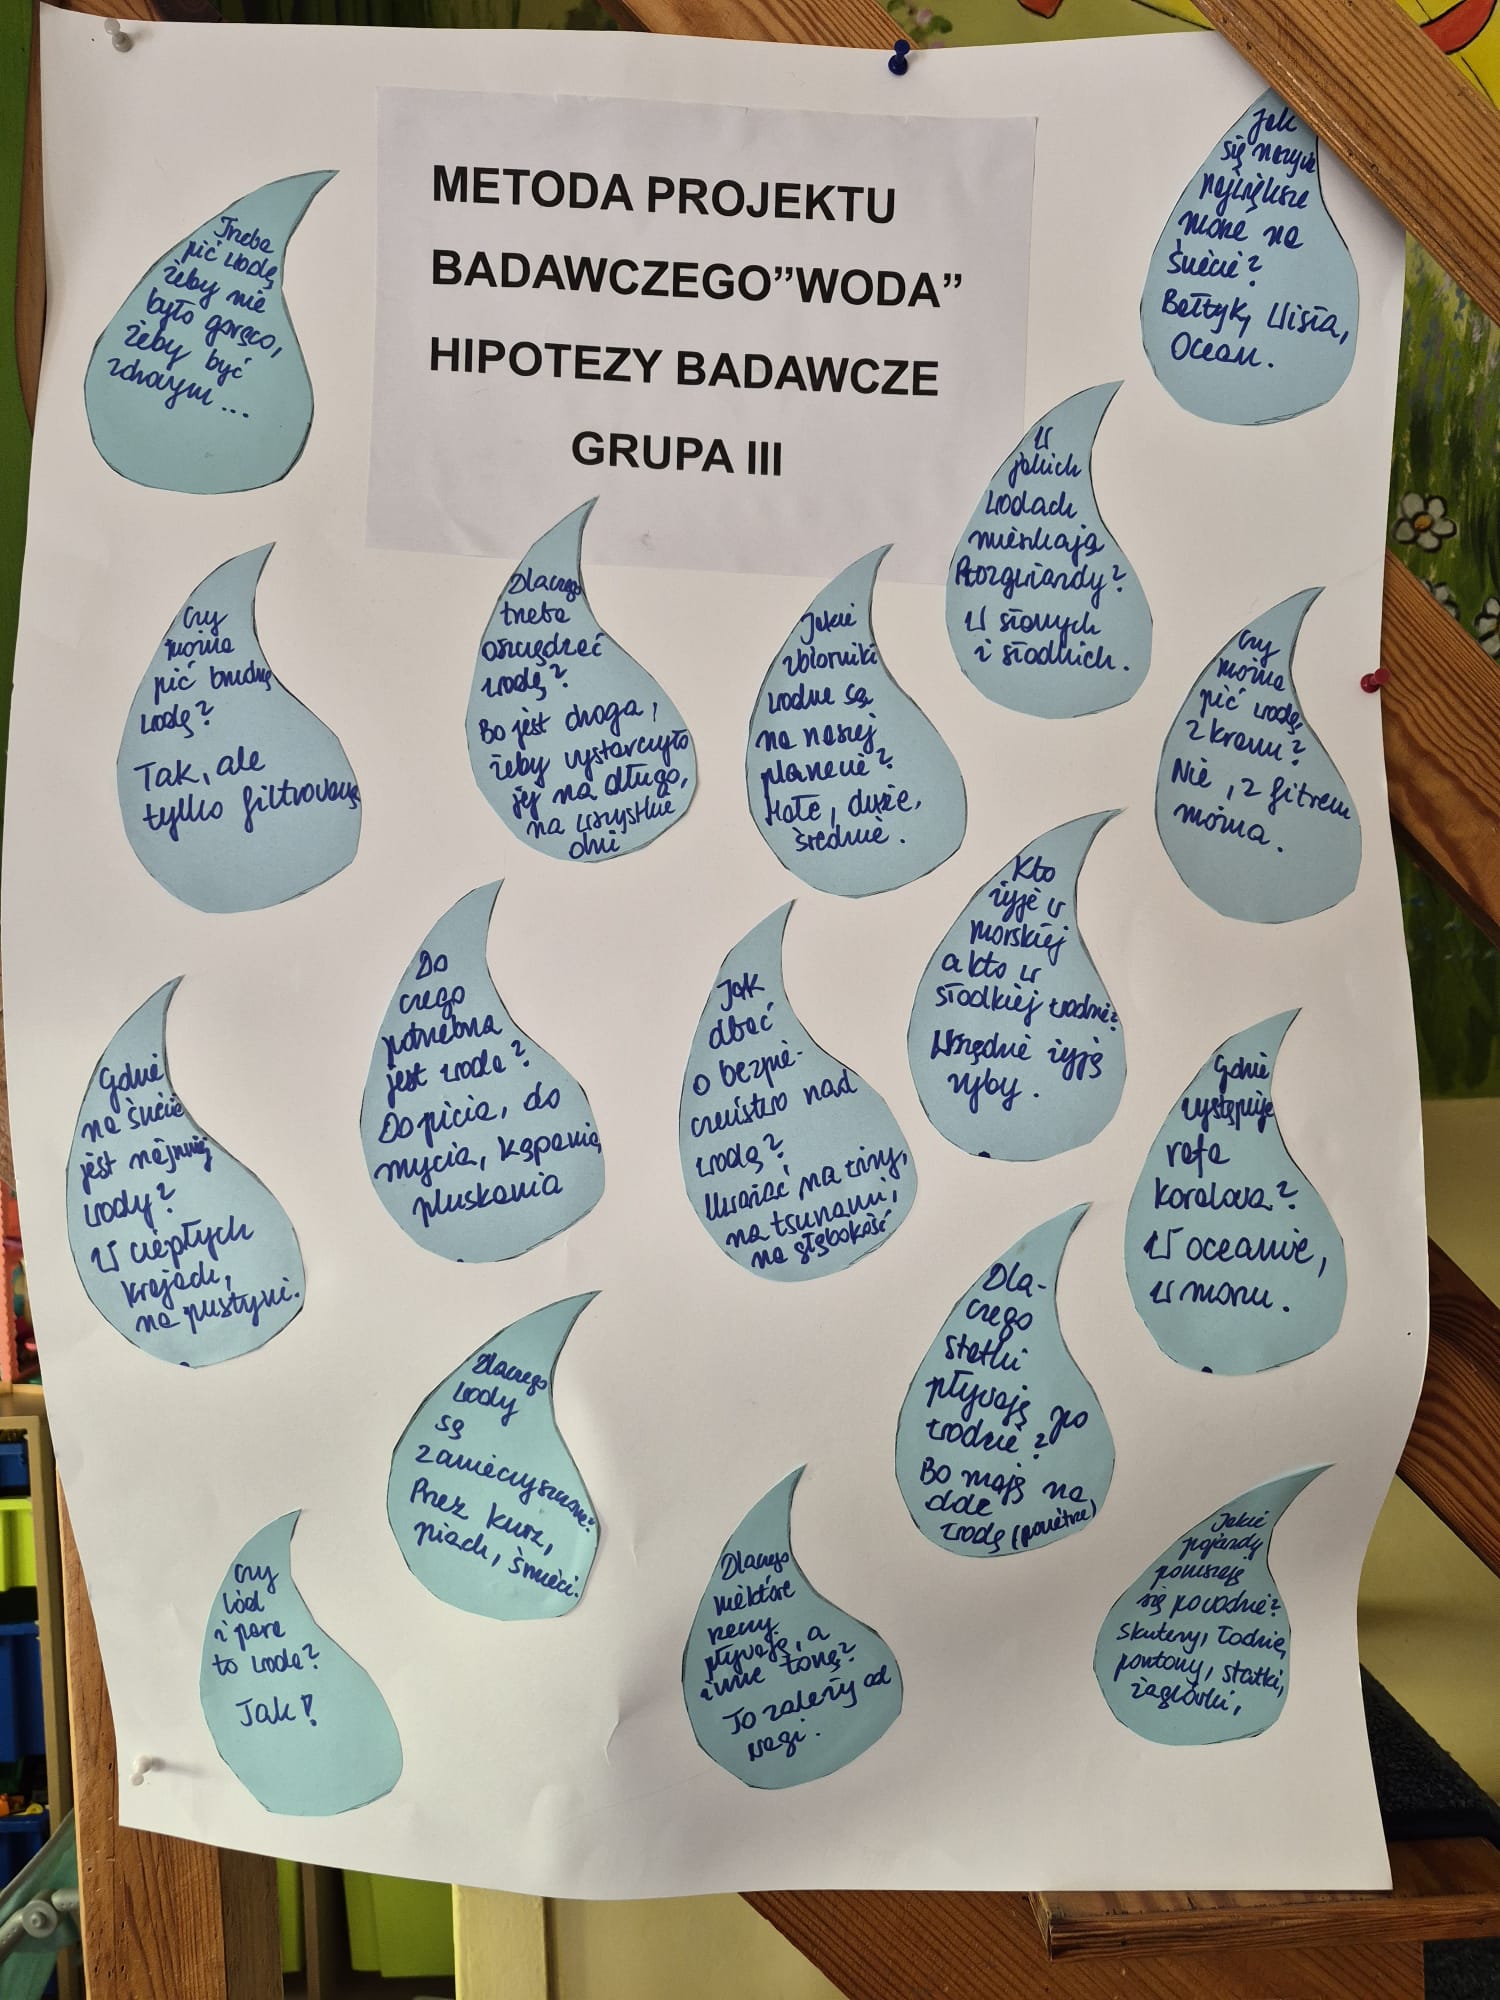 METODA PROJEKTU
BADAWCZEGO”WODA”
HIPOTEZY BADAWCZE
GRUPA III
Trzeba
pić wodę
żeby nie
było gorąco,
żeby być
zdrowym...
Jak
się nazywa
największe
morze na
świecie?
Bałtyk, Wisła,
Ocean.
W
jakich
wodach
mieszkają
Rozgwiazdy?
W słonych
i słodkich.
Czy
można
pić brudną
wodę?
Tak, ale
tylko filtrowaną
Dlaczego
trzeba
oszczędzać
wodę?
Bo jest droga,
żeby wystarczyło
jej na długo,
na wszystkie
dni
Jakie
zbiorniki
wodne są
na naszej
planecie?
Małe, duże,
średnie.
Czy
można
pić wodę
z kranu?
Nie, z fitrem
można.
Gdzie
na świecie
jest najmniej
wody?
W ciepłych
krajach,
na pustyni.
Do
czego
potrzebna
jest woda?
Do picia, do
mycia, kąpania,
pluskania
Jak
dbać
o bezpie-
czeństwo nad
wodą?
Uważać na
na tsunami,
na głębokość
Kto
żyje w
morskiej
a kto w
słodkiej wodzie?
Wszędzie żyją
ryby.
Gdzie
występuje
rafa
koralowa?
W oceanie,
w morzu.
Dlaczego
wody
są
zanieczyszczone?
Przez kurz,
piach, śmieci.
Dla-
czego
statki
pływają po
wodzie?
Bo mają na
dole
wodę (powietrze)
Czy
lód
i para
to woda?
Tak!
Dlaczego
niektóre
rzeczy
pływają, a
inne toną?
To zależy od
wagi.
Jakie
pojazdy
poruszają
się po wodzie?
skutery, łodzie,
pontony, statki,
żaglówki,